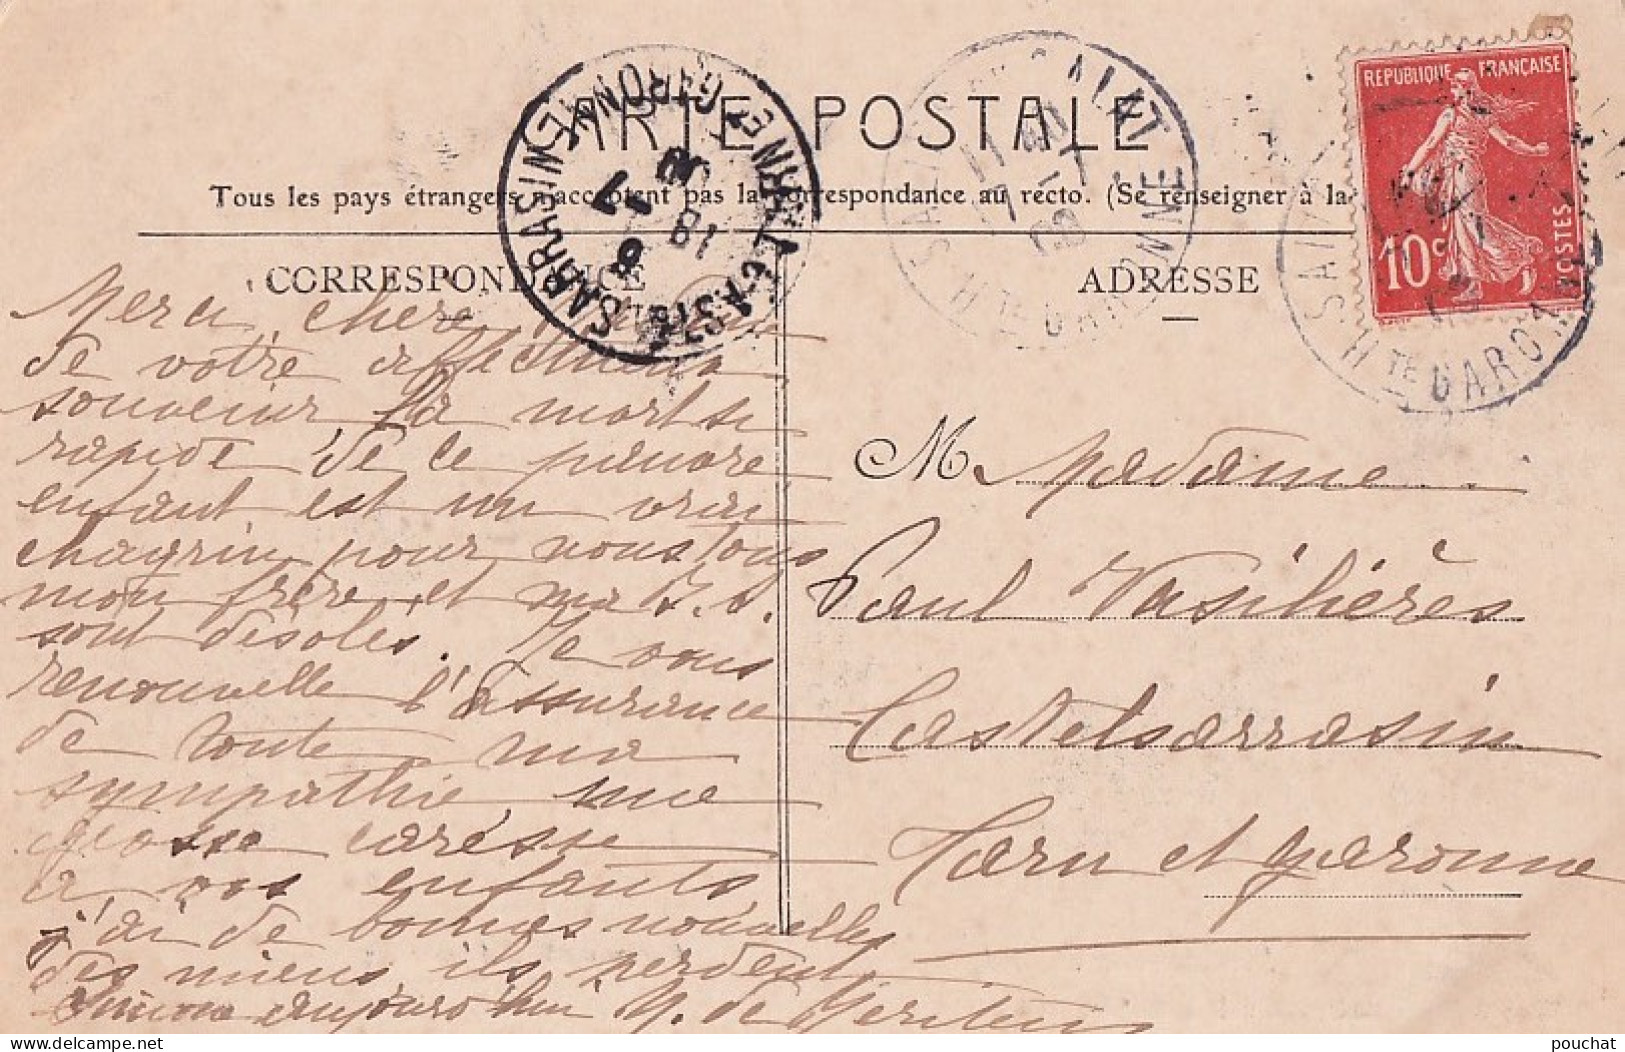 CARTE POSTALE
Tous les pays étrangers n'acceptent pas la correspondance au recto. (Se renseigner à la
CORRESPONDANCE
ADRESSE
REPUBLIQUE FRANÇAISE
10c
POSTES
CASTELSARRASIN
TARN ET GARONNE
18
Hte GARONNE
Hte GARONNE
Merci, chère
de votre affectueux
souvenir, la mort si
rapide de ce pauvre
enfant est un vrai
chagrin pour nous tous
mon frère et ma
sont désolés. Je vous
renouvelle l'assurance
de toute ma
sympathie, une
grosse caresse
à vos enfants
j'ai de bonnes nouvelles
des miens ils perdent
Simone aujourd'hui M. de
M. Madame
Paul Vasilières
Castelsarrasin
Tarn et Garonne
pouchat